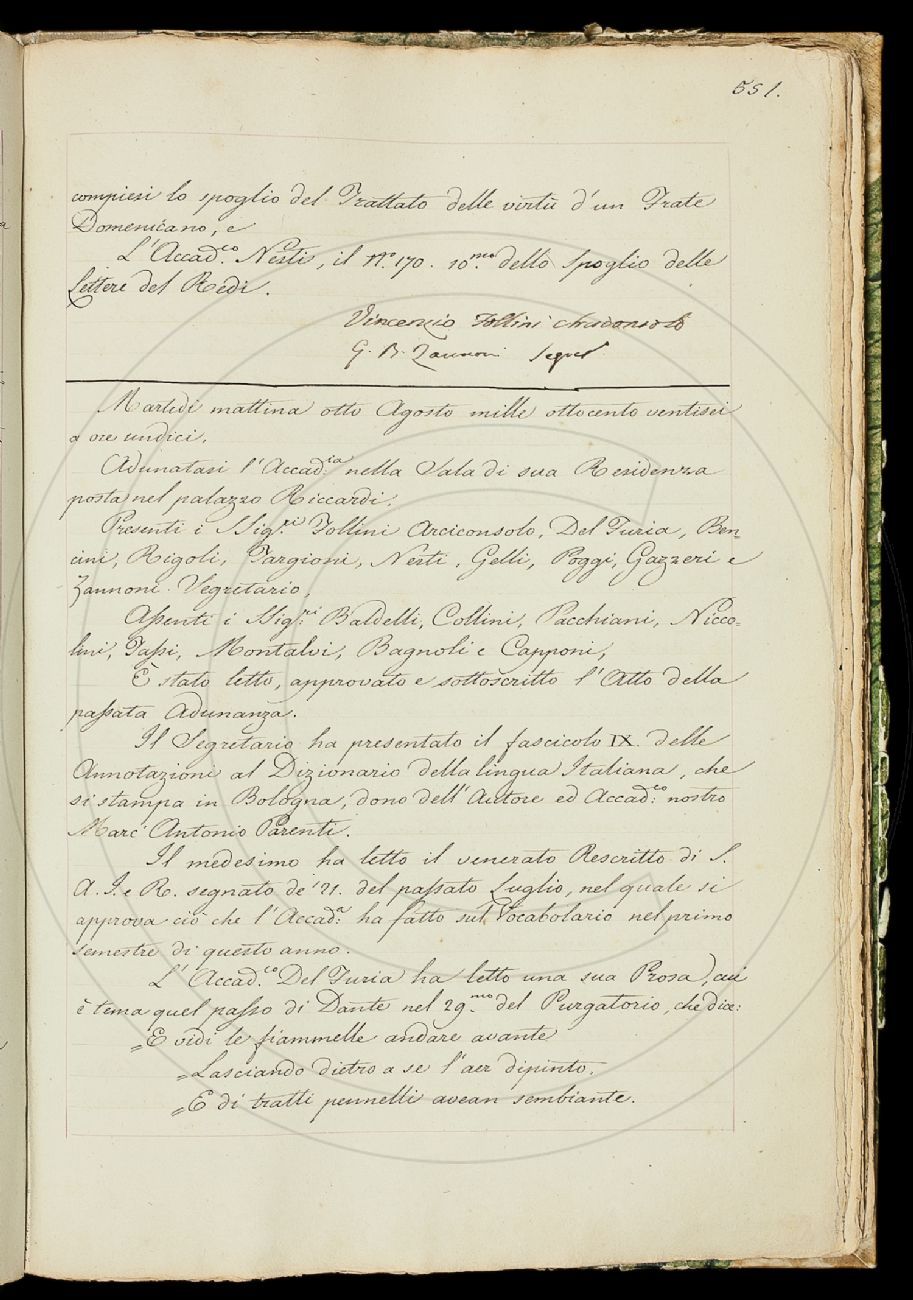 551.
compiesi lo spoglio del Trattato delle virtù d'un Frate
Domenicano, e
L'Accad.co Nesti, il N.o 170. 10.mo dello spoglio delle
Lettere del Redi.
Vincenzio Follini Arciconsolo
G. B. Zannoni Segret
Martedì mattina otto Agosto mille ottocento ventisei
a ore undici.
Adunatasi l'Accad.ia nella Sala di sua Residenza
posta nel palazzo Riccardi.
Presenti i Sig.ri Follini Arciconsolo, Del Furia, Ben=
cini, Rigoli, Targioni, Nesti, Gelli, Poggi, Gazzeri e
Zannoni Segretario.
Assenti i Sig.ri Baldelli, Collini, Pacchiani, Nicco=
lini, Tassi, Montalvi, Bagnoli e Capponi,
È stato letto, approvato e sottoscritto l'Atto della
passata Adunanza.
Il Segretario ha presentato il fascicolo IX. delle
Annotazioni al Dizionario della lingua Italiana, che
si stampa in Bologna, dono dell'Autore ed Accad.co nostro
Marc'Antonio Parenti.
Il medesimo ha letto il venerato Rescritto di S.
A. I. e R. segnato de' 21. del passato Luglio, nel quale si
approva ciò che l'Accad.a ha fatto sul Vocabolario nel primo
semestre di questo anno.
L'Accad.co Del Furia ha letto una sua Prosa, cui
è tema quel passo di Dante nel 29.mo del Purgatorio, che dice:
"E vidi le fiammelle andare avante
"Lasciando dietro a se l'aer dipinto.
"E di tratti pennelli avean sembiante.